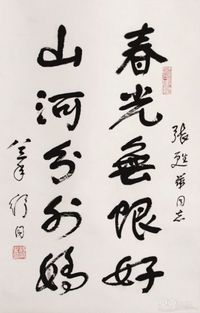 張 同志
春光無限好
山河分外嬌
年 舒同